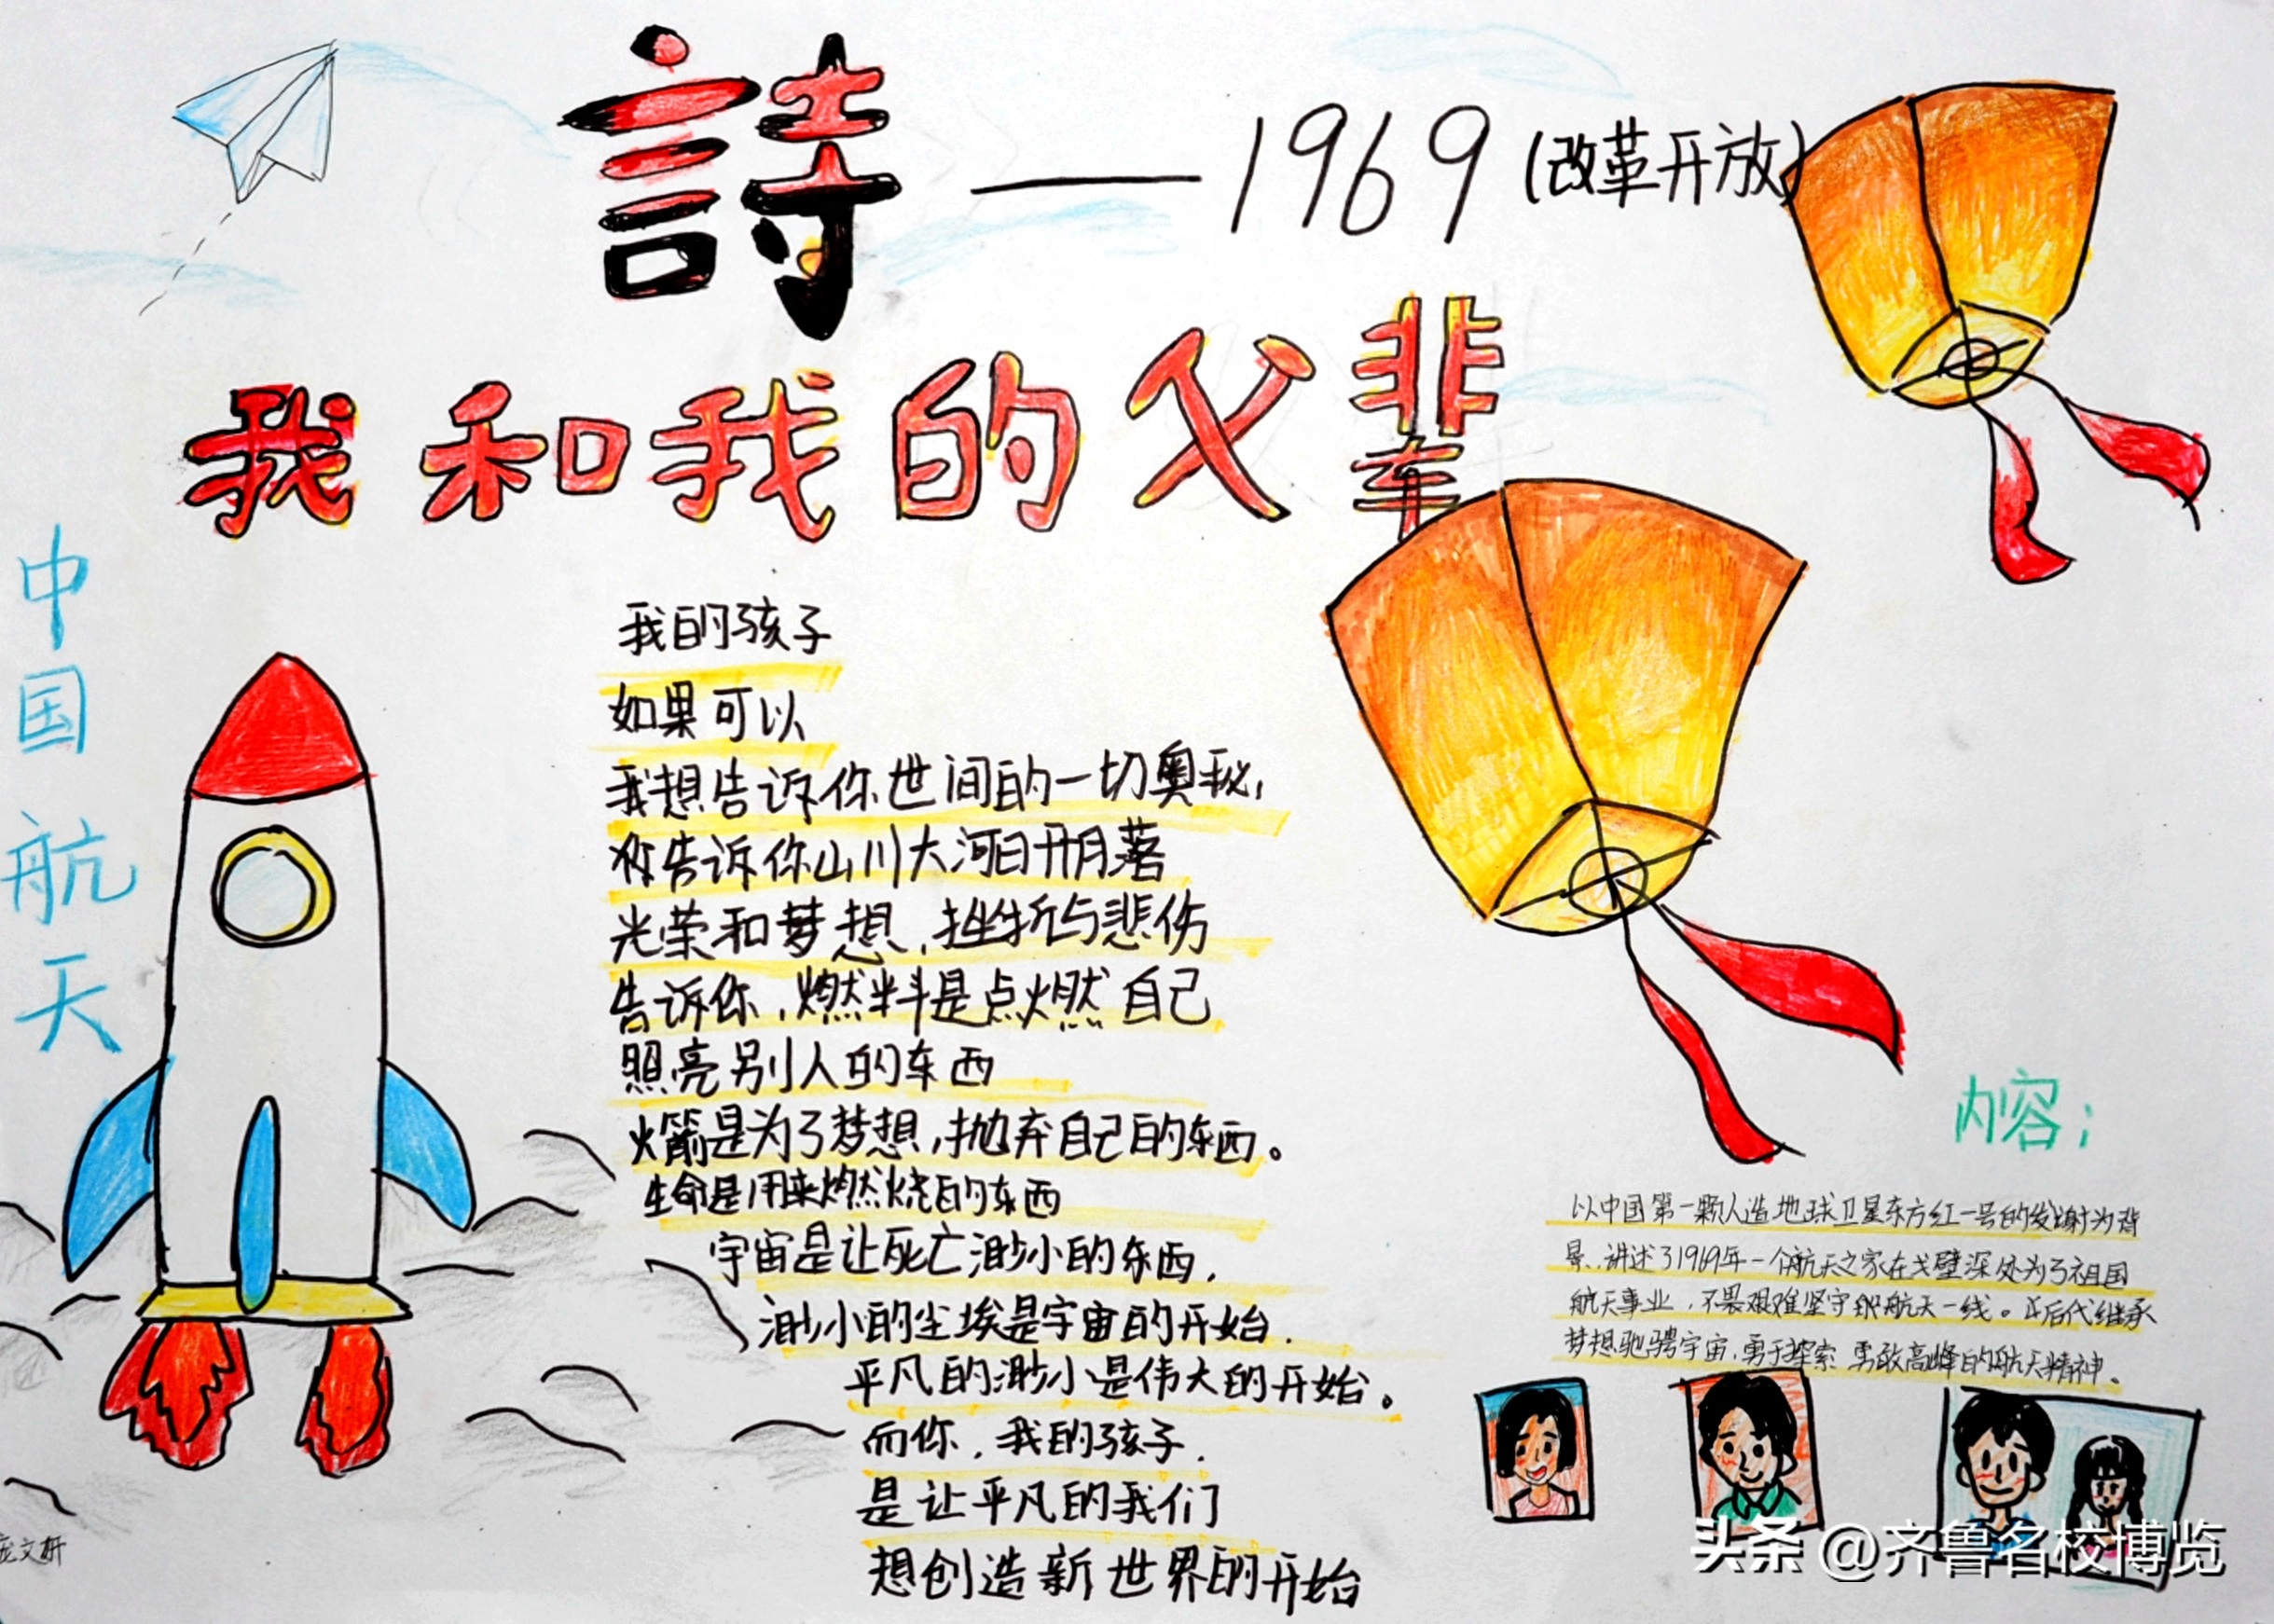 詩——1969(改革开放)
我和我的父辈
中国航天
我的孩子
如果可以
我想告诉你世间的一切奥秘,
告诉你山川大河日升月落
光荣和梦想,挫折与悲伤
告诉你,燃料是点燃自己
照亮别人的东西
火箭是为了梦想,抛弃自己的东西。
生命是用来燃烧的东西
宇宙是让死亡渺小的东西,
渺小的尘埃是宇宙的开始.
平凡的渺小是伟大的开始。
而你,我的孩子.
是让平凡的我们
想创造新世界的开始
内容:
以中国第一颗人造地球卫星东方红一号的发射为背
景,讲述了1969年一个航天之家在戈壁深处为了祖国
航天事业,不畏艰难坚守 航天一线。 后代继承
梦想驰骋宇宙,勇于探索 勇敢高峰的航天精神。
头条 @齐鲁名校博览